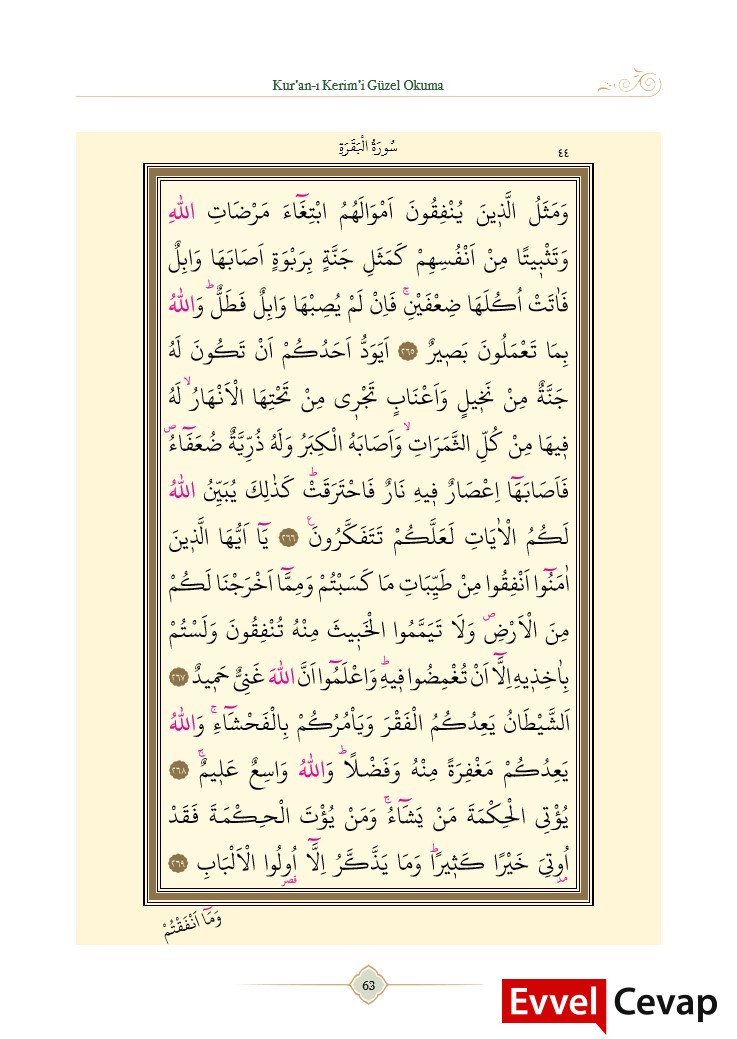 Kur'an-ı Kerim'i Güzel Okuma
سُورَةُ الْبَقَرَةِ
٤٤
وَمَثَلُ الَّذ۪ينَ يُنْفِقُونَ اَمْوَالَهُمُ ابْتِغَٓاءَ مَرْضَاتِ اللّٰهِ
وَتَثْب۪يتًا مِنْ اَنْفُسِهِمْ كَمَثَلِ جَنَّةٍ بِرَبْوَةٍ اَصَابَهَا وَابِلٌ
فَاٰتَتْ اُكُلَهَا ضِعْفَيْنِۚ فَاِنْ لَمْ يُصِبْهَا وَابِلٌ فَطَلٌّۜ وَاللّٰهُ
بِمَا تَعْمَلُونَ بَص۪يرٌ ﴿٢٦٥﴾ اَيَوَدُّ اَحَدُكُمْ اَنْ تَكُونَ لَهُ
جَنَّةٌ مِنْ نَخ۪يلٍ وَاَعْنَابٍ تَجْر۪ى مِنْ تَحْتِهَا الْاَنْهَارُۙ لَهُ
ف۪يهَا مِنْ كُلِّ الثَّمَرَاتِۙ وَاَصَابَهُ الْكِبَرُ وَلَهُ ذُرِّيَّةٌ ضُعَفَٓاءُۖ
فَاَصَابَهَٓا اِعْصَارٌ ف۪يهِ نَارٌ فَاحْتَرَقَتْۜ كَذٰلِكَ يُبَيِّنُ اللّٰهُ
لَكُمُ الْاٰيَاتِ لَعَلَّكُمْ تَتَفَكَّرُونَ۟ ﴿٢٦٦﴾ يَٓا اَيُّهَا الَّذ۪ينَ
اٰمَنُٓوا اَنْفِقُوا مِنْ طَيِّبَاتِ مَا كَسَبْتُمْ وَمِمَّٓا اَخْرَجْنَا لَكُمْ
مِنَ الْاَرْضِۖ وَلَا تَيَمَّمُوا الْخَب۪يثَ مِنْهُ تُنْفِقُونَ وَلَسْتُمْ
بِاٰخِذ۪يهِ اِلَّٓا اَنْ تُغْمِضُوا ف۪يهِۜ وَاعْلَمُٓوا اَنَّ اللّٰهَ غَنِىٌّ حَم۪يدٌ ﴿٢٦٧﴾
اَلشَّيْطَانُ يَعِدُكُمُ الْفَقْرَ وَيَأْمُرُكُمْ بِالْفَحْشَٓاءِۚ وَاللّٰهُ
يَعِدُكُمْ مَغْفِرَةً مِنْهُ وَفَضْلًاۜ وَاللّٰهُ وَاسِعٌ عَل۪يمٌۚ ﴿٢٦٨﴾
يُؤْتِى الْحِكْمَةَ مَنْ يَشَٓاءُۚ وَمَنْ يُؤْتَ الْحِكْمَةَ فَقَدْ
اُو۫تِىَ خَيْرًا كَث۪يرًاۜ وَمَا يَذَّكَّرُ اِلَّٓا اُو۬لُوا الْاَلْبَابِ ﴿٢٦٩﴾
مد قصر
وَمَٓا اَنْفَقْتُمْ
63
Evvel Cevap